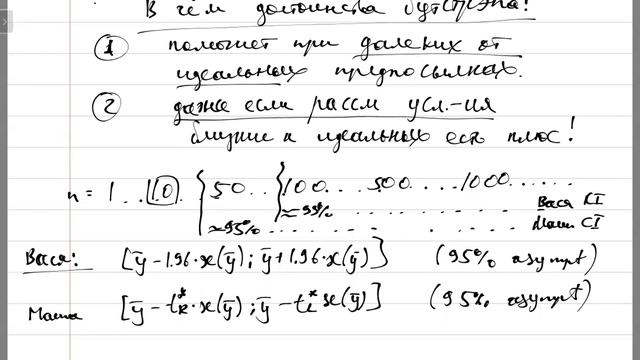 В чём достоинства бутстрэпа?
① помогает при далеких от
идеальных предпосылках.
② даже если рассм усл.-ия
близкие к идеальных есть плюс!
n = 1 . . 10 { 50 . . { 100 . . . 500 . . . . 1000 . . . . . .
≈95% ≈95% Вася CI
Маша CI
Вася: [ȳ - 1.96 · se(ȳ) ; ȳ + 1.96 · se(ȳ)] (95% asympt)
Маша [ȳ - t*_R · se(ȳ) ; ȳ - t*_L se(ȳ)] (95% asympt)